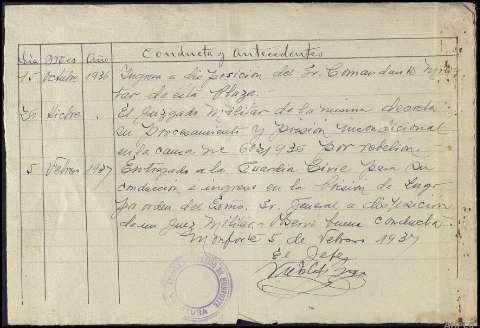 Día Mes Año Conducta y Antecedentes
15 Octubre 1936 Ingresa a disposición del Sr. Comandante Mili-
tar de esta Plaza.-
Dicbre. El Juzgado Militar de la misma decreta
su procesamiento y prisión incondicional
en la causa nº 1936 por rebelión.-
5 Febrero 1937 Entregado a la Guardia Civil para su
conducción e ingreso en la Prisión de Lugo
por orden del Excmo. Sr. General a disposición
de un Juez Militar.- Observó buena conducta.
Monforte 5 de Febrero 1937
El Jefe,